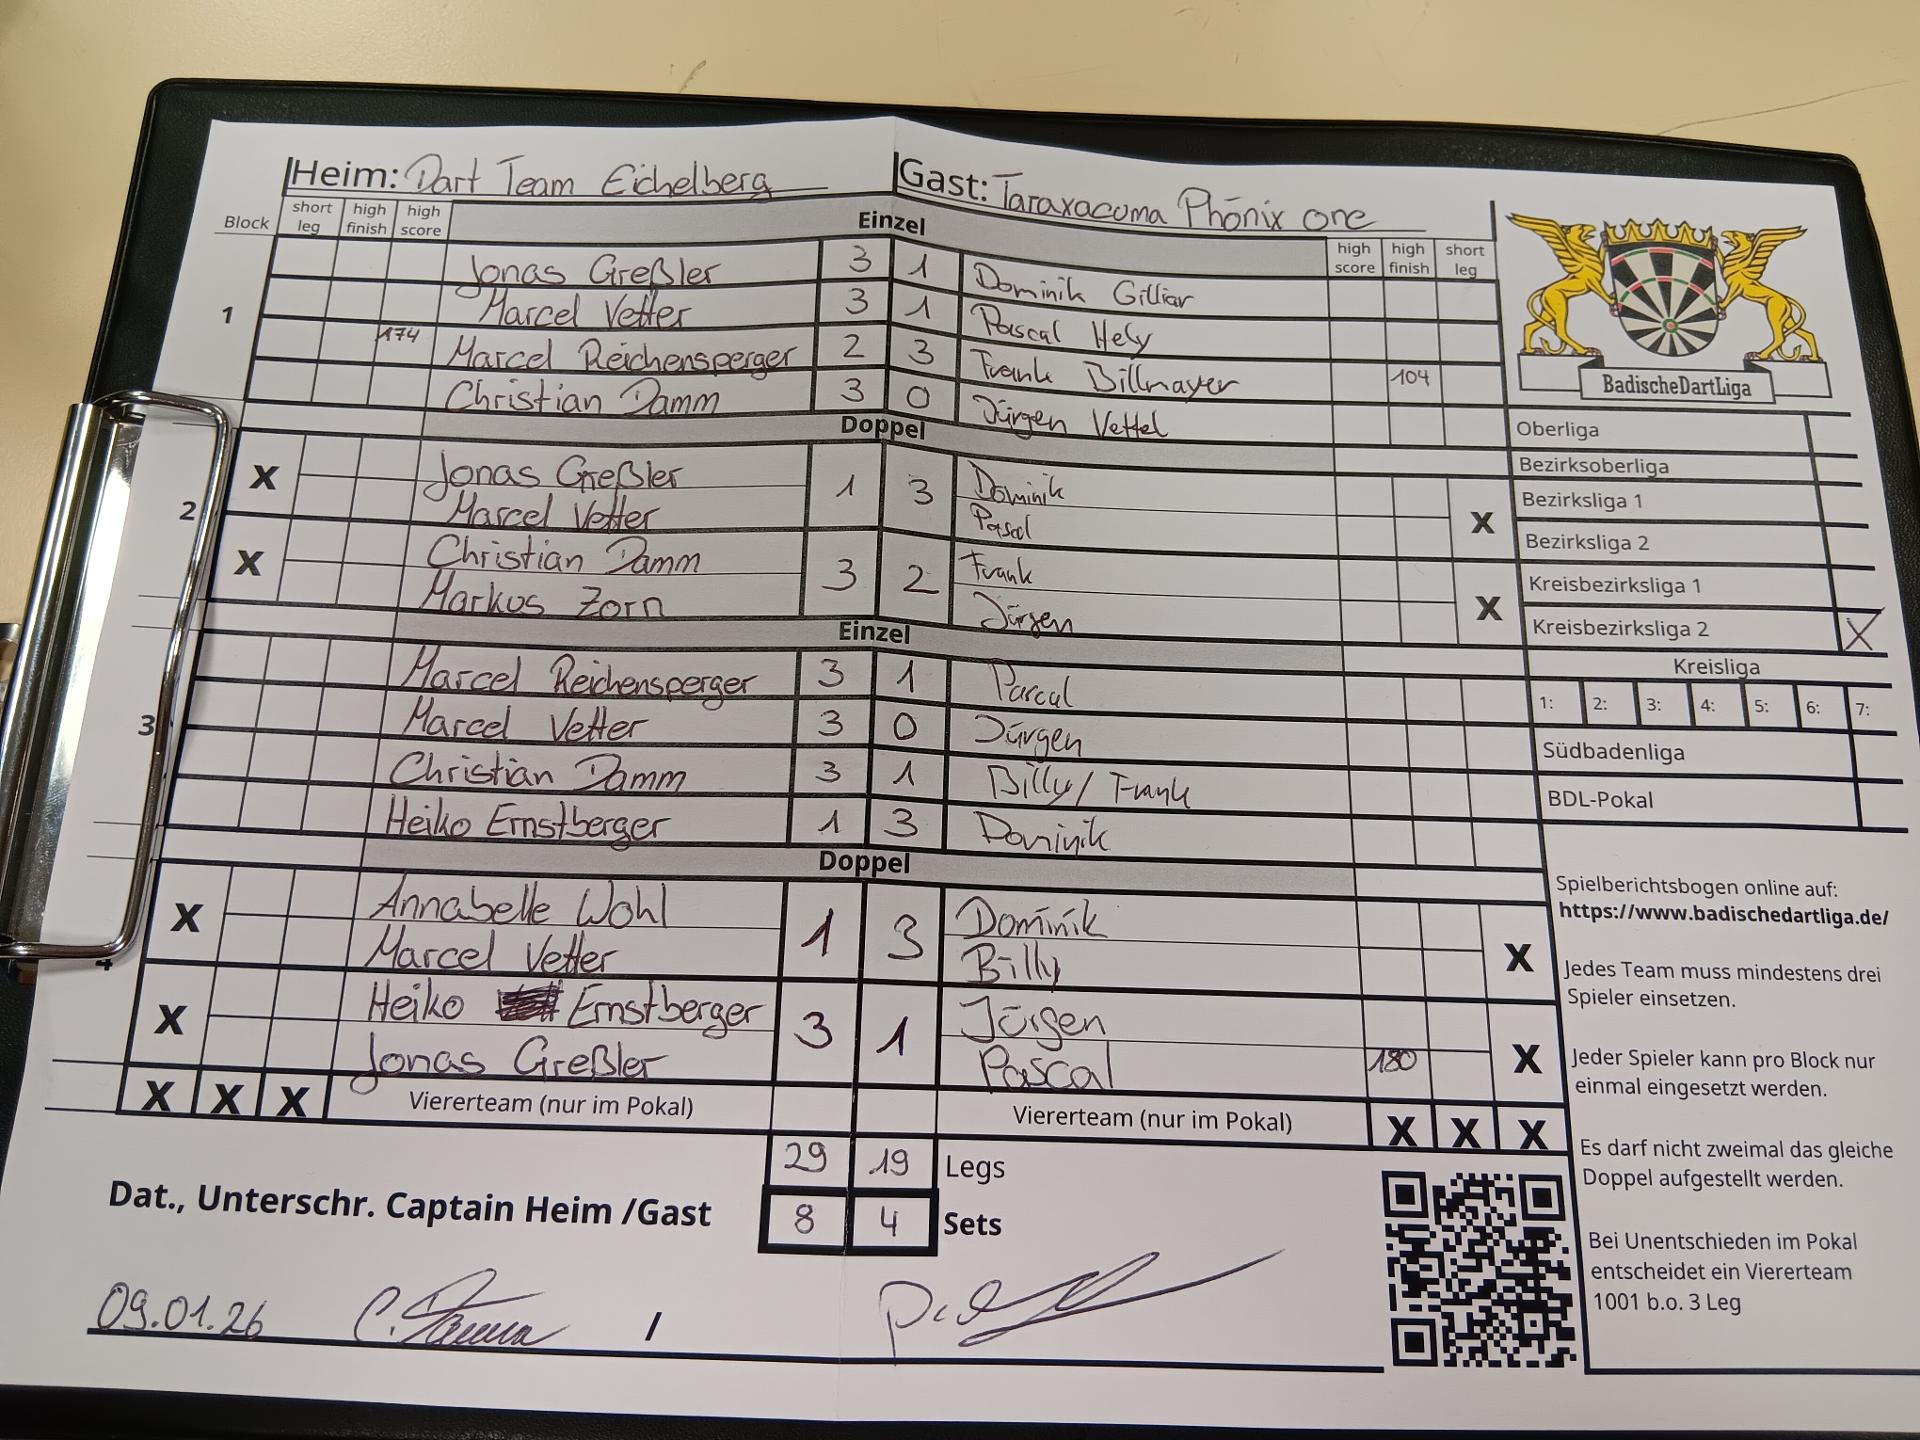 Heim: Dart Team Eichelberg
Gast: Taraxacuma Phönix one
Block short leg high finish high score Einzel high score high finish short leg
1
Jonas Greßler 3 1 Dominik Gilliar
Marcel Vetter 3 1 Pascal Hely
174 Marcel Reichensperger 2 3 Frank Billmayer 104
Christian Damm 3 0 Jürgen Vettel
Doppel
2
X Jonas Greßler 1 3 Dominik X
Marcel Vetter Pascal
X Christian Damm 3 2 Frank X
Markus Zorn Jürgen
Einzel
3
Marcel Reichensperger 3 1 Pascal
Marcel Vetter 3 0 Jürgen
Christian Damm 3 1 Billy/Frank
Heiko Ernstberger 1 3 Dominik
Doppel
4
X Annabelle Wohl 1 3 Dominik X
Marcel Vetter Billy
X Heiko Ernstberger 3 1 Jürgen X
Jonas Greßler Pascal 180
X X X Viererteam (nur im Pokal) Viererteam (nur im Pokal) X X X
29 19 Legs
Dat., Unterschr. Captain Heim /Gast 8 4 Sets
09.01.26 C. Damm /
BadischeDartLiga
Oberliga
Bezirksoberliga
Bezirksliga 1
Bezirksliga 2
Kreisbezirksliga 1
Kreisbezirksliga 2 X
Kreisliga
1: 2: 3: 4: 5: 6: 7:
Südbadenliga
BDL-Pokal
Spielberichtsbogen online auf:
https://www.badischedartliga.de/
Jedes Team muss mindestens drei
Spieler einsetzen.
Jeder Spieler kann pro Block nur
einmal eingesetzt werden.
Es darf nicht zweimal das gleiche
Doppel aufgestellt werden.
Bei Unentschieden im Pokal
entscheidet ein Viererteam
1001 b.o. 3 Leg